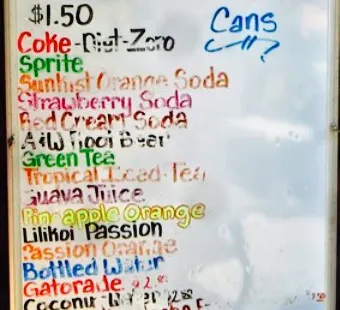 $1.50
Cans
Coke-Diet-Zero
Sprite
Sunkist Orange Soda
Strawberry Soda
Red Cream Soda
A&W Root Beer
Green Tea
Tropical Iced-Tea
Guava Juice
Pineapple Orange
Lilikoi Passion
Passion Orange
Bottled Water
Gatorade
Coconut-Water